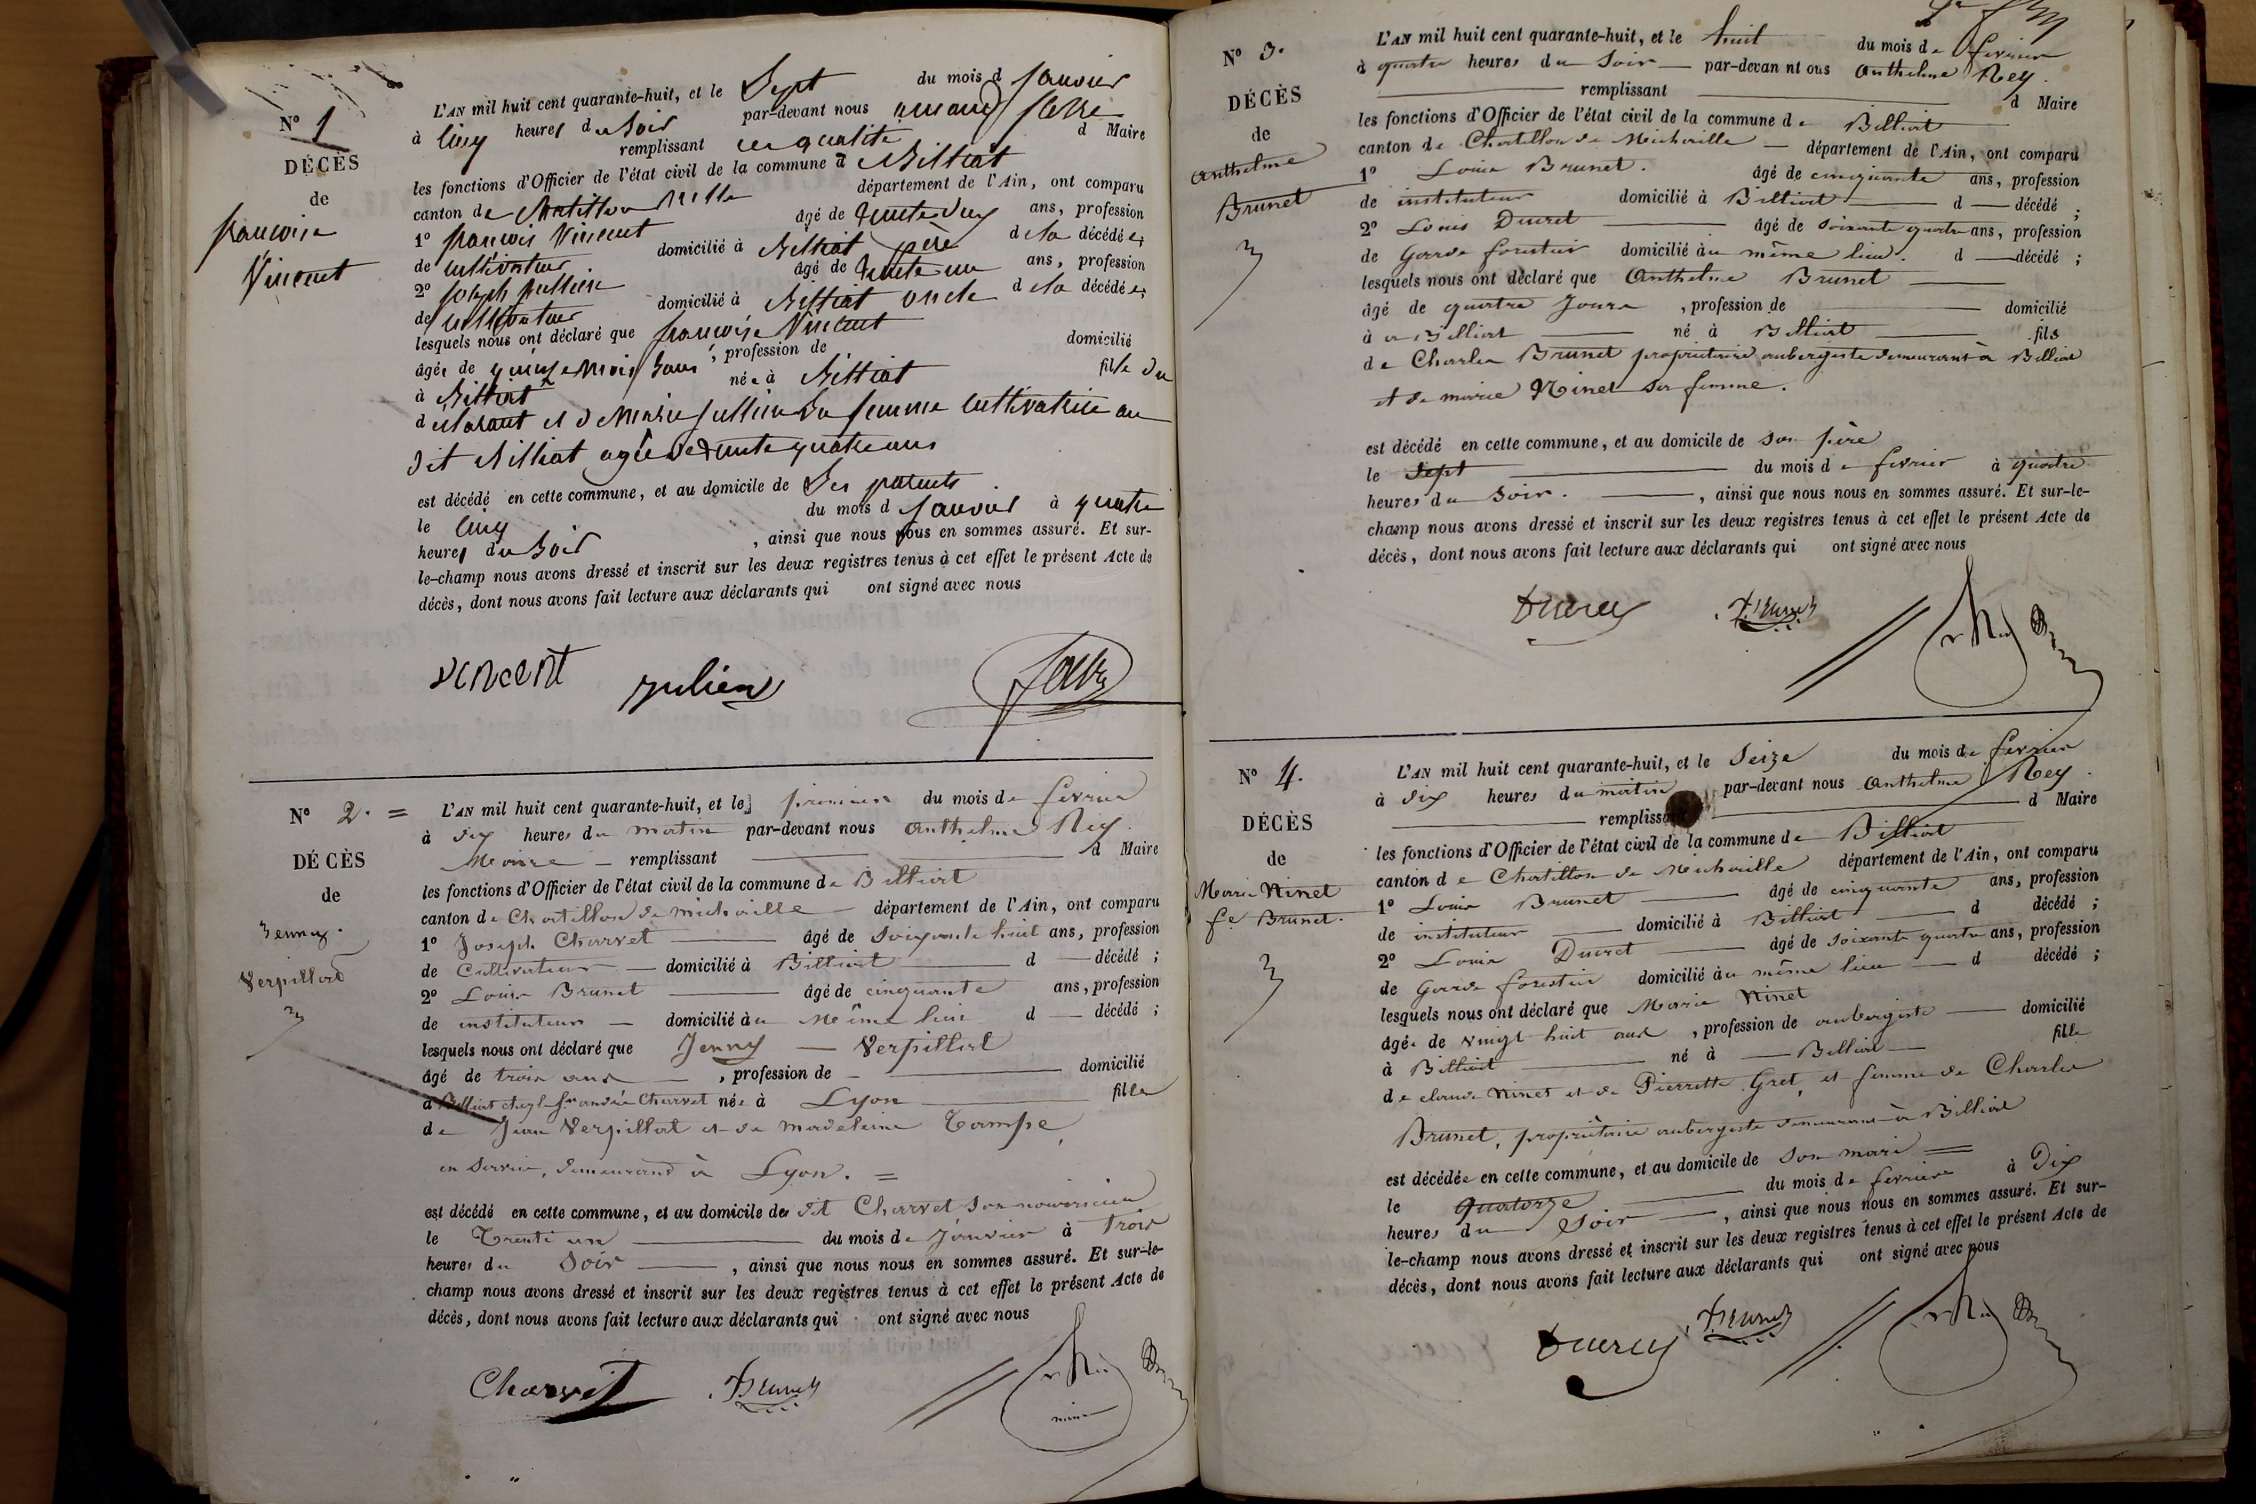 N° 1
DÉCÈS
de
françoise
Vincent
L'AN mil huit cent quarante-huit, et le Sept du mois d janvier
à cinq heures du Soir par-devant nous
remplissant d Maire
les fonctions d'Officier de l'état civil de la commune d Billiat
canton de département de l'Ain, ont comparu
1° françois Vincent âgé de ans, profession
de cultivateur domicilié à Billiat père d e la décédée;
2° Joseph jullien âgé de trente un ans, profession
de cultivateur domicilié à Billiat oncle d e la décédée;
lesquels nous ont déclaré que françoise Vincent
âgée de quinze mois , profession de domicilié
à Billiat née à Billiat fille du
déclarant et de Marie jullien Sa femme cultivatrice au
dit Billiat agée de trente quatre ans
est décédé en cette commune, et au domicile de Ses parents
le cinq du mois d janvier à quatre
heures du Soir , ainsi que nous nous en sommes assuré. Et sur-
le-champ nous avons dressé et inscrit sur les deux registres tenus à cet effet le présent Acte de
décès, dont nous avons fait lecture aux déclarants qui ont signé avec nous
vincent julien
N° 2. =
DÉCÈS
de
Jenny
Verpillat
L'AN mil huit cent quarante-huit, et le premier du mois de fevrier
à dix heures du matin par-devant nous anthelme Rey.
Maire remplissant d Maire
les fonctions d'Officier de l'état civil de la commune de Billiat
canton de Chatillon de michaille département de l'Ain, ont comparu
1° Joseph Charvet âgé de soixante huit ans, profession
de Cultivateur domicilié à Billiat d décédé ;
2° Louis Brunet âgé de cinquante ans, profession
de instituteur domicilié au Même lieu d décédé ;
lesquels nous ont déclaré que Jenny Verpillat
âgé de trois ans , profession de domicilié
à Billiat chez Charvet née à Lyon fille
de Jean Verpillat et de madeleine Tampe,
en service, demeurand à Lyon. =
est décédé en cette commune, et au domicile de dit Charvet son nourricier
le Trente un du mois de Janvier à trois
heures du Soir , ainsi que nous nous en sommes assuré. Et sur-le-
champ nous avons dressé et inscrit sur les deux registres tenus à cet effet le présent Acte de
décès, dont nous avons fait lecture aux déclarants qui ont signé avec nous
Charvet Brunet
N° 3.
DÉCÈS
de
Anthelme
Brunet
L'AN mil huit cent quarante-huit, et le huit du mois de fevrier
à quatre heures du Soir par-devan nt ous Anthelme Rey.
remplissant d Maire
les fonctions d'Officier de l'état civil de la commune de Billiat
canton de Chatillon de Michaille département de l'Ain, ont comparu
1° Louis Brunet. âgé de cinquante ans, profession
de instituteur domicilié à Billiat d décédé ;
2° Louis Ducret âgé de soixante quatre ans, profession
de Garde forestier domicilié au même lieu. d décédé ;
lesquels nous ont déclaré que Anthelme Brunet
âgé de quatre Jours , profession de domicilié
à a Billiat né à Billiat fils
de Charles Brunet propriétaire aubergiste demeurant à Billiat
et de marie Ninet sa femme.
est décédé en cette commune, et au domicile de son père
le Sept du mois de fevrier à quatre
heures du Soir. , ainsi que nous nous en sommes assuré. Et sur-le-
champ nous avons dressé et inscrit sur les deux registres tenus à cet effet le présent Acte de
décès, dont nous avons fait lecture aux déclarants qui ont signé avec nous
Ducret Brunet
N° 4.
DÉCÈS
de
Marie Ninet
fe Brunet.
L'AN mil huit cent quarante-huit, et le Seize du mois de fevrier
à dix heures du matin par-devant nous Anthelme Rey.
remplissant d Maire
les fonctions d'Officier de l'état civil de la commune de Billiat
canton de Chatillon de Michaille département de l'Ain, ont comparu
1° Louis Brunet âgé de cinquante ans, profession
de instituteur domicilié à Billiat d décédé ;
2° Louis Ducret âgé de soixante quatre ans, profession
de Garde forestier domicilié au même lieu d décédé ;
lesquels nous ont déclaré que Marie Ninet
âgée de vingt huit ans , profession de aubergiste domicilié
à Billiat né à Billiat fille
de claude Ninet et de Pierrette Gret, et femme de Charles
Brunet, propriétaire aubergiste demeurant à Billiat
est décédée en cette commune, et au domicile de son mari =
le quatorze du mois de fevrier à Dix
heures du Soir , ainsi que nous nous en sommes assuré. Et sur-
le-champ nous avons dressé et inscrit sur les deux registres tenus à cet effet le présent Acte de
décès, dont nous avons fait lecture aux déclarants qui ont signé avec nous
Ducret Brunet